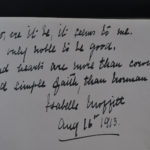 , ere it be, it seems to me.
only noble to be good.
d hearts are more than coron
d simple faith, than Norman
Isabelle Moffitt
Aug 16th 1913.